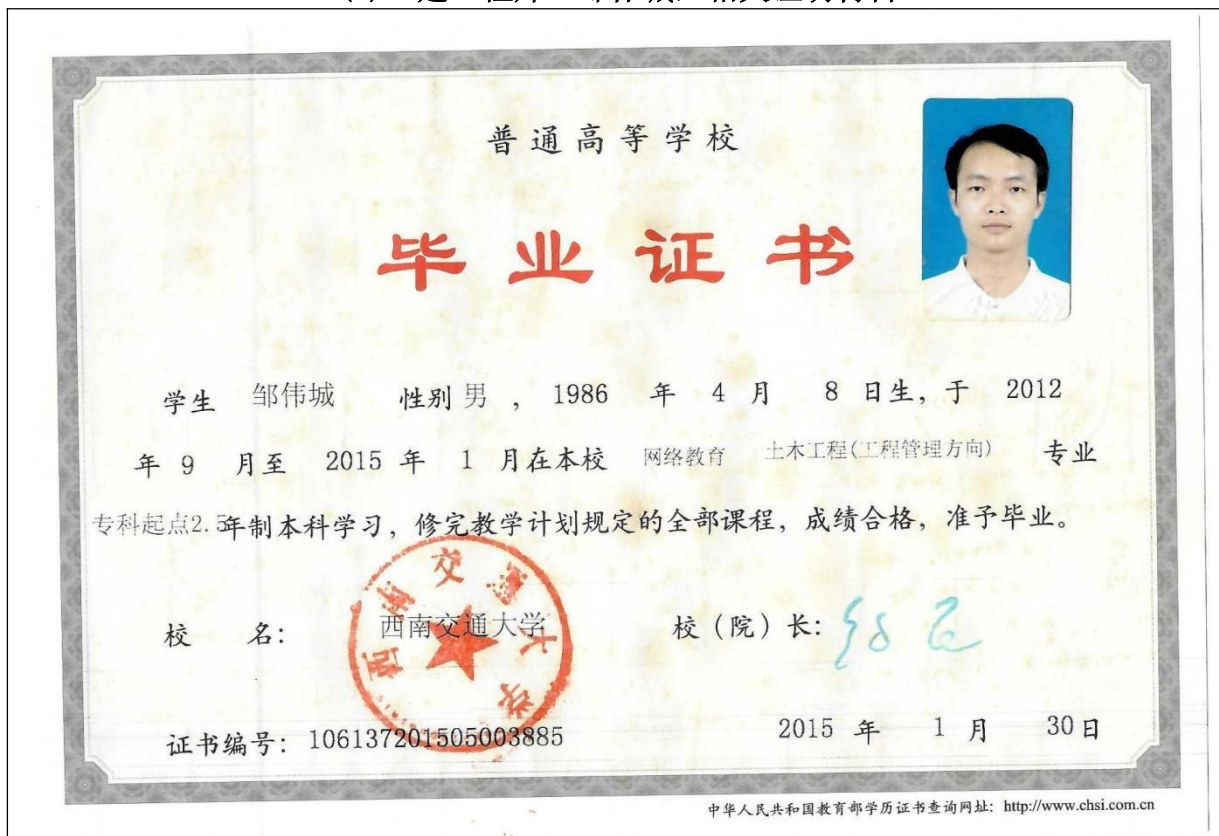 普通高等学校
毕业证书
学生 邹伟城 性别 男 , 1986 年 4 月 8 日生, 于 2012
年 9 月至 2015 年 1 月在本校 网络教育 土木工程(工程管理方向) 专业
专科起点2.5年制本科学习, 修完教学计划规定的全部课程, 成绩合格, 准予毕业。
西南交通大学
校 名: 西南交通大学 校(院)长:
证书编号: 106137201505003885 2015 年 1 月 30日
中华人民共和国教育部学历证书查询网址: http://www.chsi.com.cn